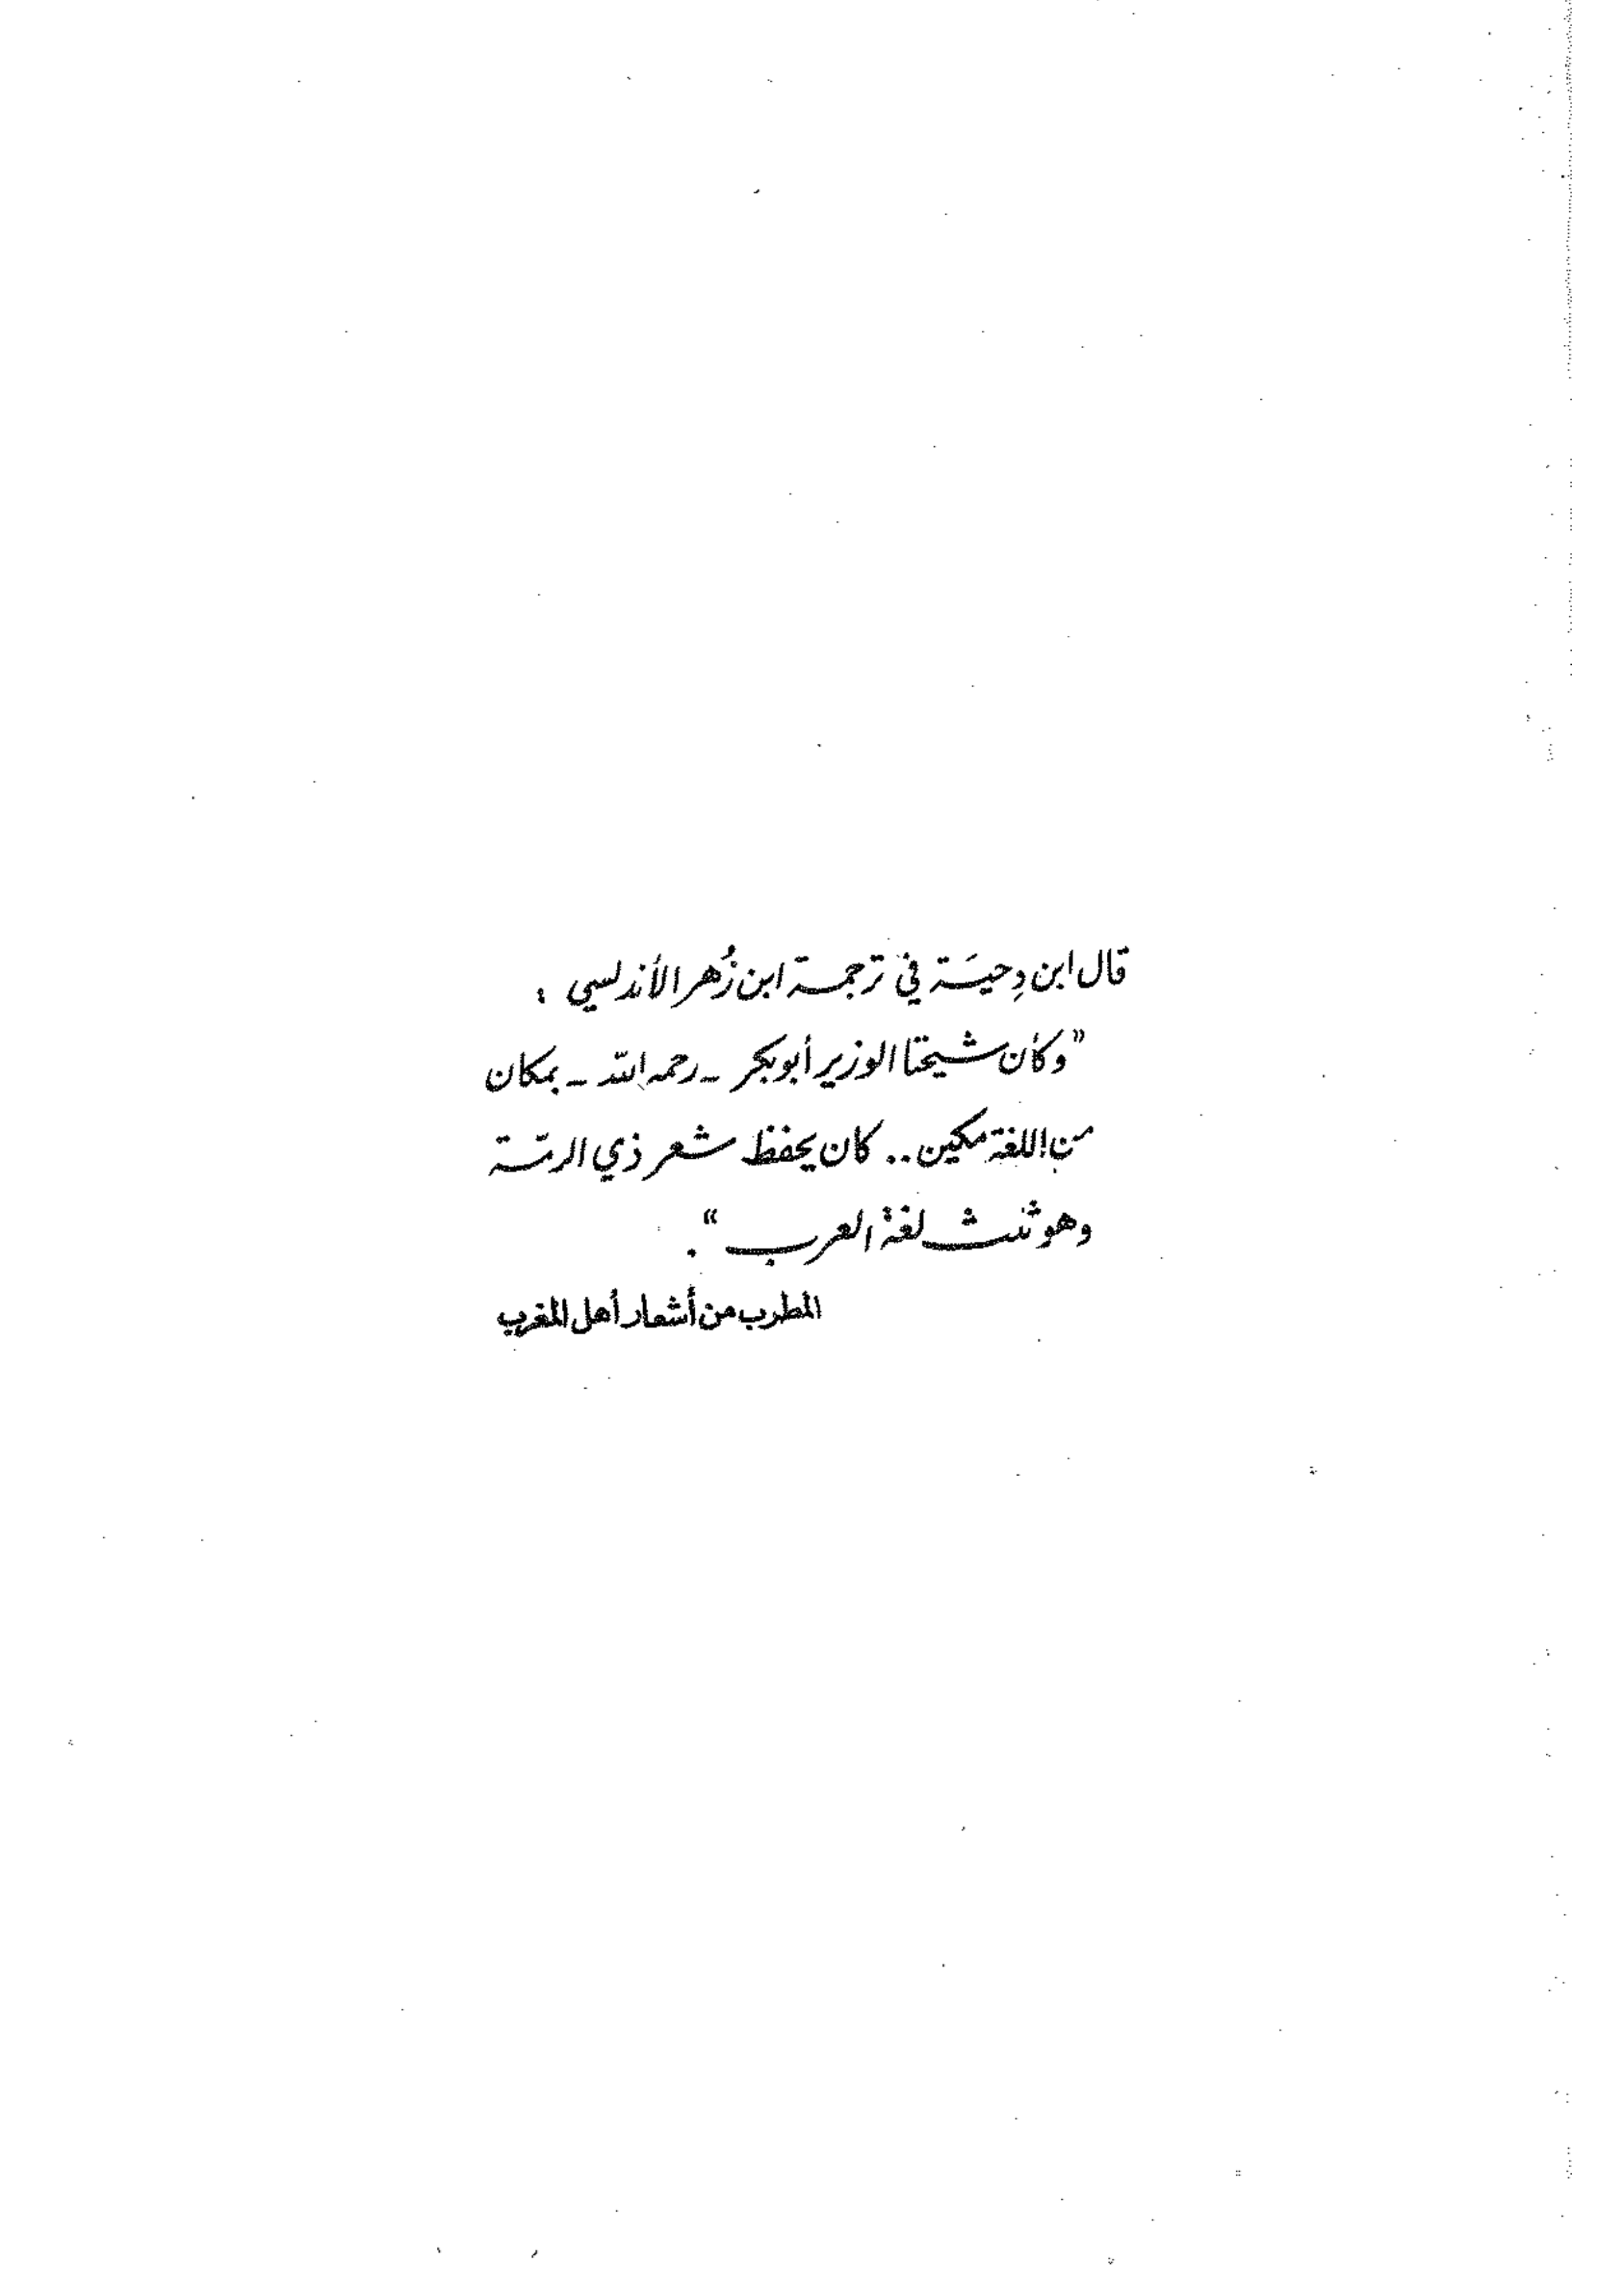 قال ابن دِحيَة في ترجمة ابن زُهر الأندلسي :
"وكان شيخنا الوزير أبو بكر - رحمه الله - بمكان
من اللغة مكين .. كان يحفظ شعر ذي الرمّة
وهو ثلث لغة العرب" .
المطرب من أشعار أهل المغرب